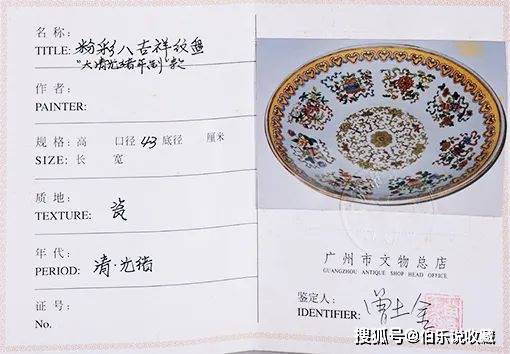 名 称:
TITLE: 粉彩八吉祥纹盘
“大清光绪年制”款
作 者:
PAINTER:
规 格: 高 口径 43 底径 厘米
SIZE: 长 宽
质 地:
TEXTURE: 瓷
年 代:
PERIOD: 清·光绪
证 号:
No.
广州市文物总店
GUANGZHOU ANTIQUE SHOP HEAD OFFICE
鉴定人:
IDENTIFIER: 曾土金
搜狐号@伯乐说收藏